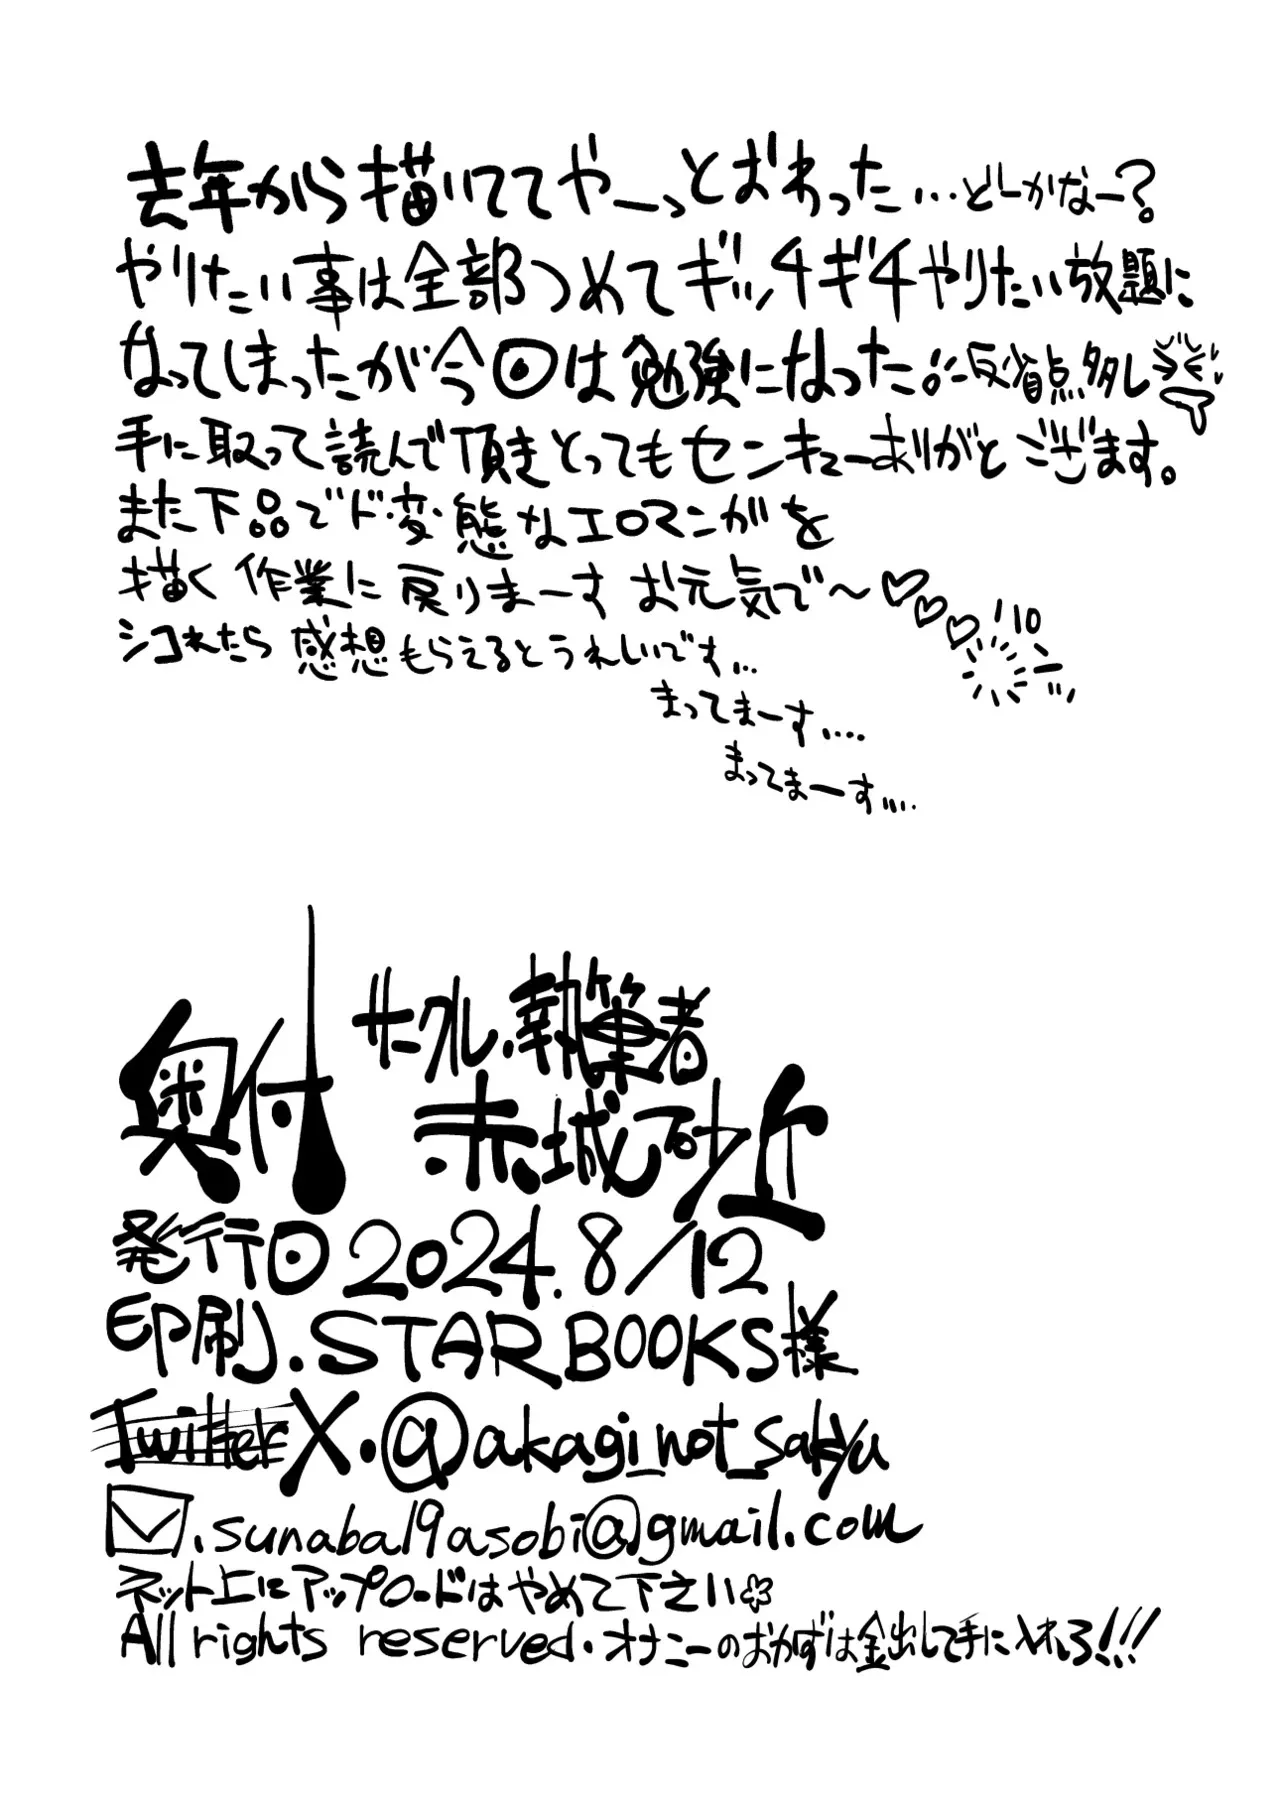 去年から描いててやーっとおわった…どーかなー?
やりたい事は全部つめてギッチギチやりたい放題に
なってしまったが今回は勉強になった!!反省点多し
手に取って読んで頂きとってもセンキューありがとござぎます。
また下品でド変態なエロマンガを
描く作業に戻りまーすお元気で〜♡♡♡
シコれたら感想もらえるとうれしいです…
まってまーす….
まってまーす….
奥付
サークル.執筆者
赤城砂丘
発行日2024.8/12
印刷.STARBOOKS様
Twitter X.@akagi_not_sakyu
.sunaba19asobi@gmail.com
ネット上にアップロードはやめて下さい
All rights reserved.オナニーのおかずは金出して手に入れろ!!!